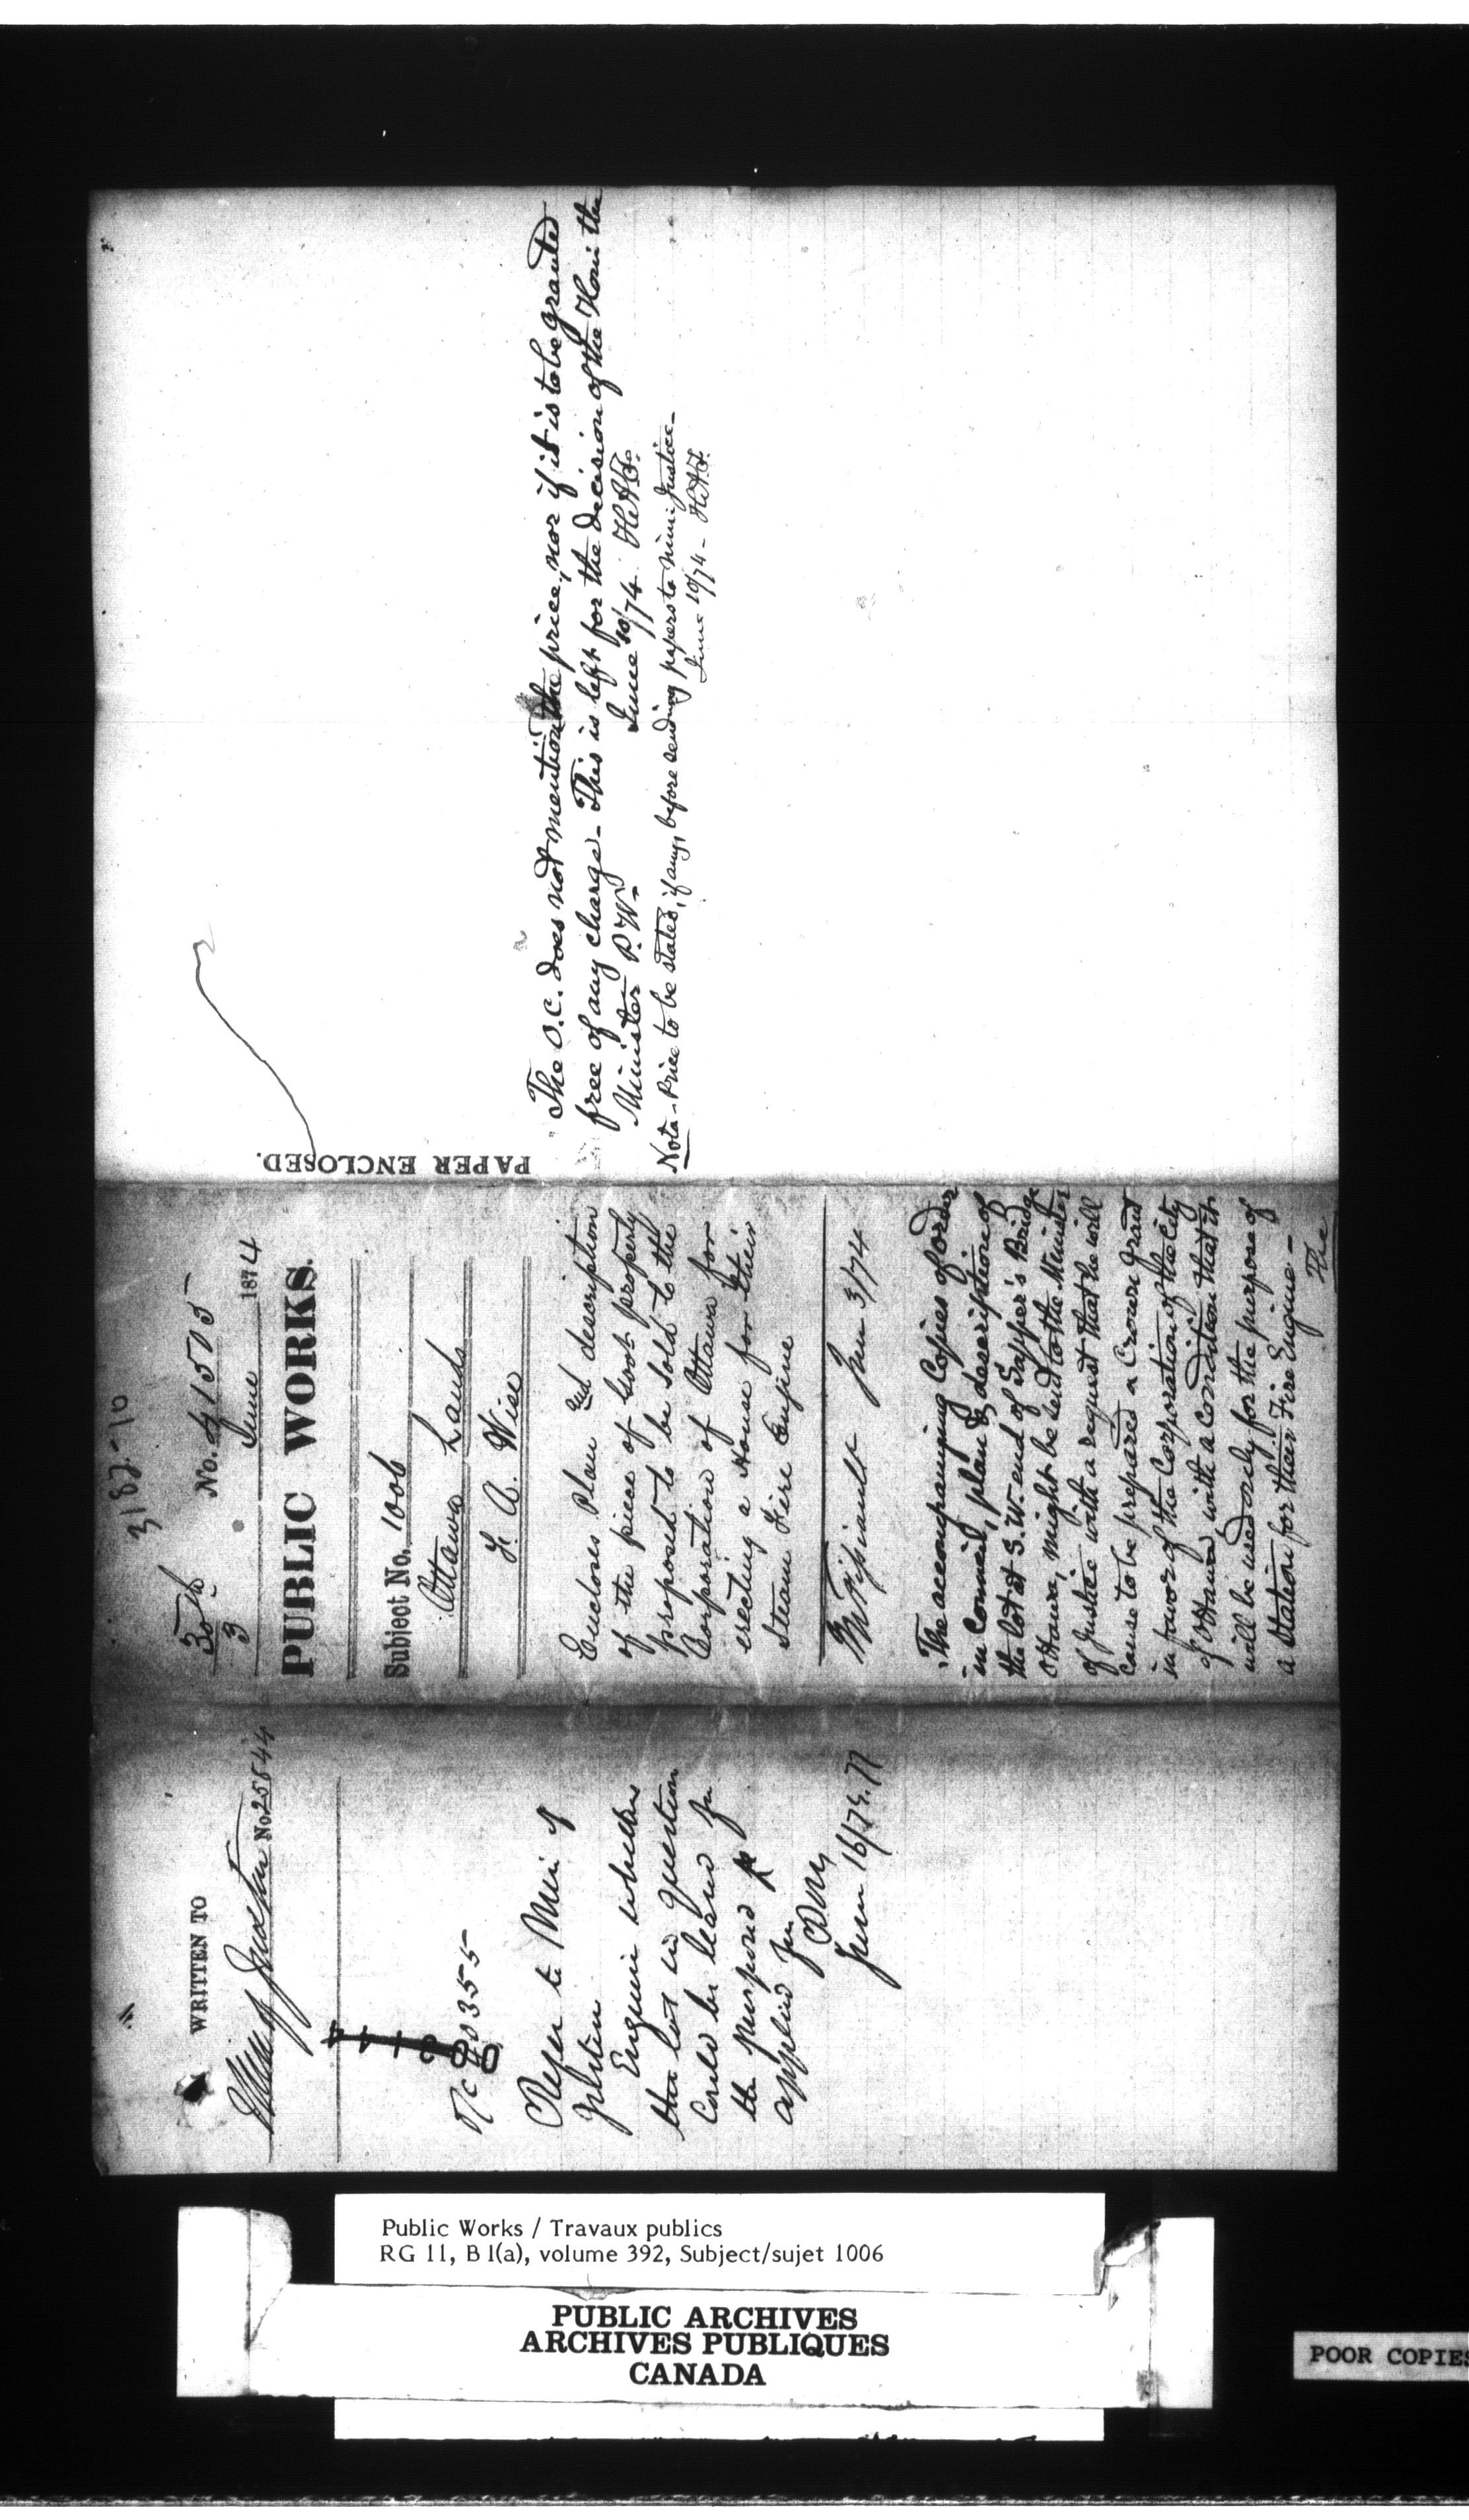 WRITTEN TO
Min of Justice No. 25644
40355
Refer to Min of
Justice
Enquire whether
the lot in question
could be leased for
the purpose
applied for
June 16/74
3182-10
30th
3
No. 41505
June 1874
PUBLIC WORKS.
Subject No. 1006
Ottawa Lands
F. A. Wise
Encloses Plan and description
of the piece of Govt property
proposed to be sold to the
Corporation of Ottawa for
erecting a House for their
Steam Fire Engine
Mr Fissiault June 3/74
The accompanying Copies of order
in Council, plan & description of
the lot at S.W. end of Sapper's Bridge
Ottawa, might be sent to the Minister
of Justice with a request that he will
cause to be prepared a Crown grant
in favor of the Corporation of the City
of Ottawa with a condition that it
will be used only for the purpose of
a Station for their Fire Engine -
The
PAPER ENCLOSED.
The O.C. does not mention the price, nor if it is to be granted
free of any charge - This is left for the decision of the Hon: the
Minister P.W. - June 10/74. H.A.F.
Nota - Price to be stated, if any, before sending papers to Min: Justice -
June 10/74 - H.A.F.
Public Works / Travaux publics
RG 11, B 1(a), volume 392, Subject/sujet 1006
PUBLIC ARCHIVES
ARCHIVES PUBLIQUES
CANADA
POOR COPIES